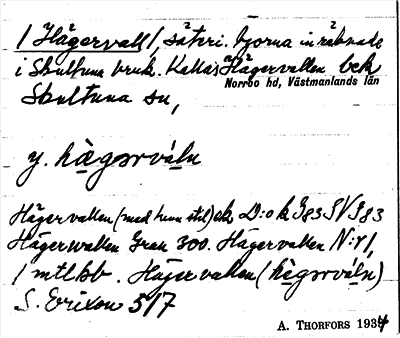 / Hägervall /, säteri. bjorna inräknade
i Skultuna bruk. Kallas Hägervallen bck
Norrbo hd, Västmanlands län
Skultuna sn,
y. hägərvá̱ln
Hägervallen (med hemmstil) ek D:o k G83 SV J83
Hägerwallen Gran 300. Hägervallen N:r 1,
1 mtl kb. Häger vallen (hägərvá̱ln)
S. Erixon 5/7
A. THORFORS 1934